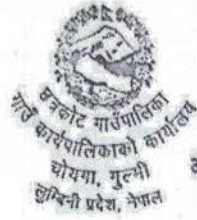 छत्रकोट गाउँपालिका
गाउँ कार्यपालिकाको कार्यालय
घोयगा, गुल्मी
लुम्बिनी प्रदेश, नेपाल